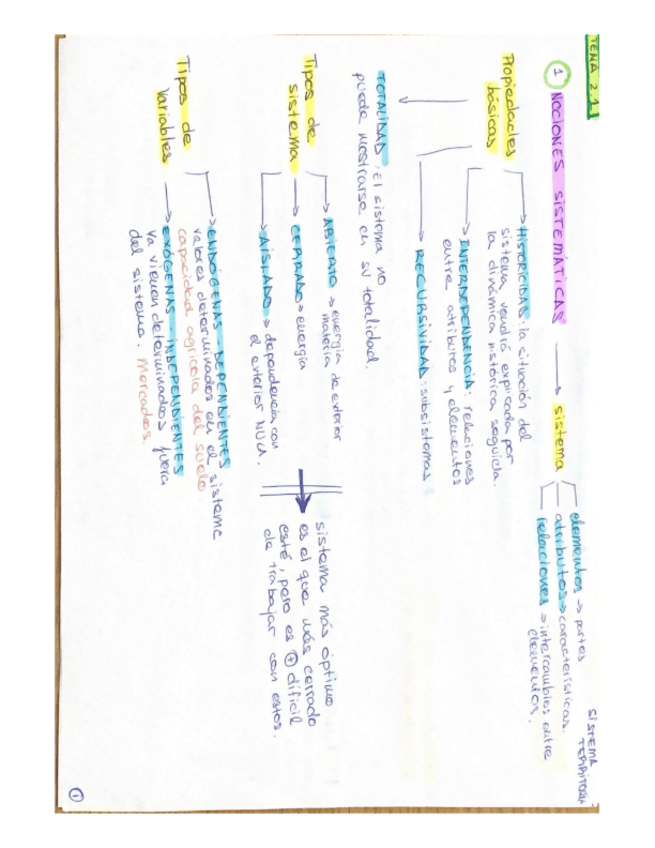 TEMA 2.1
SISTEMA
TERRITORIAL
1 NOCIONES SISTEMÁTICAS → sistema
elementos → partes
atributos → características.
relaciones → intercambios entre
elementos.
Propiedades
básicas
HISTORICIDAD: la situación del
sistema vendrá explicada por
la dinámica histórica seguida.
INTERDEPENDENCIA: relaciones
entre atributos y elementos
RECURSIVIDAD: subsistemas
TOTALIDAD: El sistema no
puede mostrarse en su totalidad.
Tipos de
sistema
ABIERTO → energía de exterior
materia
CERRADO → energía
AISLADO → dependencia con
el exterior NULA.
sistema más óptimo
es el que más cerrado
esté, pero es + difícil
de trabajar con estos.
Tipos de
variables
ENDÓGENAS - DEPENDIENTES
valores determinados en el sistema
capacidad agrícola del suelo.
EXÓGENAS - INDEPENDIENTES
va vienen determinados fuera
del sistema. Mercados.
1